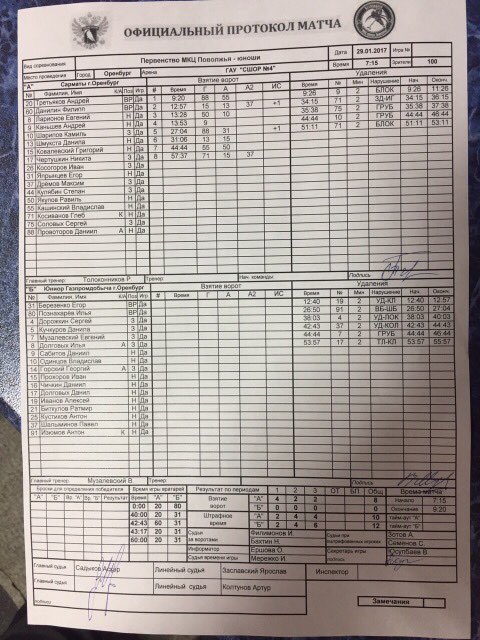 ОФИЦИАЛЬНЫЙ ПРОТОКОЛ МАТЧА
Дата 29.01.2017 Игра №
Вид соревнования Первенство МКЦ Поволжья - юноши Время 7:15 Зрители 100
Место проведения Город Оренбург Арена ГАУ "СШОР №4"
"А" Сарматы г.Оренбург Взятие ворот Удаления
№ Фамилия, Имя К/А Поз Игр # Время Г А А2 ИС Время № Мин Нарушение Нач. Оконч.
20 Третьяков Андрей ВР Да 1 9:20 88 55 9:26 9 2 БЛОК 9:26 11:26
80 Данилин Филипп ВР Да 2 12:57 15 13 37 +1 34:15 71 2 ЗД-ИГ 34:15 36:15
8 Ларионов Евгений Н Да 3 13:28 50 10 35:38 75 2 ГРУБ 35:38 37:38
9 Каньшев Андрей Н Да 4 13:53 9 44:44 10 2 ГРУБ 44:44 46:44
10 Шарипов Камиль З Да 5 27:04 88 31 +1 51:11 71 2 БЛОК 51:11 53:11
13 Шмукста Данила Н Да 6 31:06 13 15
15 Ковалевский Григорий Н Да 7 44:44 55 50
17 Чертушкин Никита З Да 8 57:37 71 15 37
28 Косогоров Иван З Да
31 Япрынцев Егор Н Да
37 Дрёмов Максим З Да
44 Кулябин Степан З Да
50 Якупов Равиль Н Да
55 Кашинский Владислав Н Да
71 Косиванов Глеб К Н Да
75 Соловых Сергей З Да
88 Провоторов Даниил А Н Да
Главный тренер Толоконников Р. Тренер: Нач. команды: Подпись
"Б" Юниор Газпромдобычи г.Оренбург Взятие ворот Удаления
№ Фамилия, Имя К/А Поз Игр # Время Г А А2 ИС Время № Мин Нарушение Нач. Оконч.
31 Березенко Егор ВР Да 12:40 19 2 УД-КЛ 12:40 12:57
80 Познахарёв Илья ВР Да 26:50 91 2 ВБ-ШБ 26:50 27:04
4 Дорожкин Сергей З Да 38:03 4 2 УД-ЛОК 38:03 40:03
5 Кучкуров Данита З Да 42:43 37 2 УД-КОЛ 42:43 44:43
7 Музалевский Евгений Н Да 44:44 7 2 ГРУБ 44:44 46:44
8 Долговых Илья А З Да 53:57 17 2 ТЛ-КЛ 53:57 55:57
9 Сабитов Даниил Н Да
10 Одинцов Владислав Н Да
14 Горский Георгий А З Да
15 Прохоров Иван Н Да
16 Чичкин Даниил Н Да
17 Долговых Данил Н Да
19 Иванов Алексей Н Да
21 Биткулов Ратмир Н Да
25 Кустиков Антон Н Да
37 Шалыминов Павел Н Да
91 Изюмов Антон К Н Да
Главный тренер Музалевский В. Тренер: Подпись
Броски для определения победителя Время игры вратарей Результат по периодам 1 2 3 ОТ БП Общ Время матча
"А" "Б" Вр. "А" Вр. "Б" Результат Время "А" "Б" Взятие ворот "А" 4 2 2 8 Начало 7:15
0:00 20 80 "Б" 0 0 0 0 Окончание 9:20
40:00 20 31 Штрафное время "А" 2 4 4 10 тайм-аут "А"
42:43 60 31 "Б" 2 4 6 12 тайм-аут "Б"
43:17 20 31 Судьи за воротами Филимонов И. Судьи при оштрафованных игроках Зотов А.
60:00 20 31 Бахтин Н. Семенов С.
Информатор Ершова О. Секретарь игры Юсупбаев В.
Судья времени игры Мережко И. подпись
Главный судья Садыков Асхар Линейный судья Заславский Ярослав Инспектор
Главный судья Линейный судья Колтунов Артур
подписи
Замечания